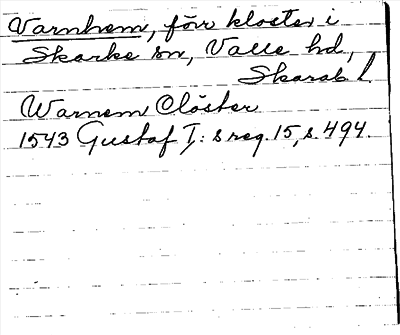 Varnhem, förr kloster i
Skarke sn, Valle hd,
Skarab l.
Warnem Clöster
1543 Gustaf I: s reg. 15, s. 494.